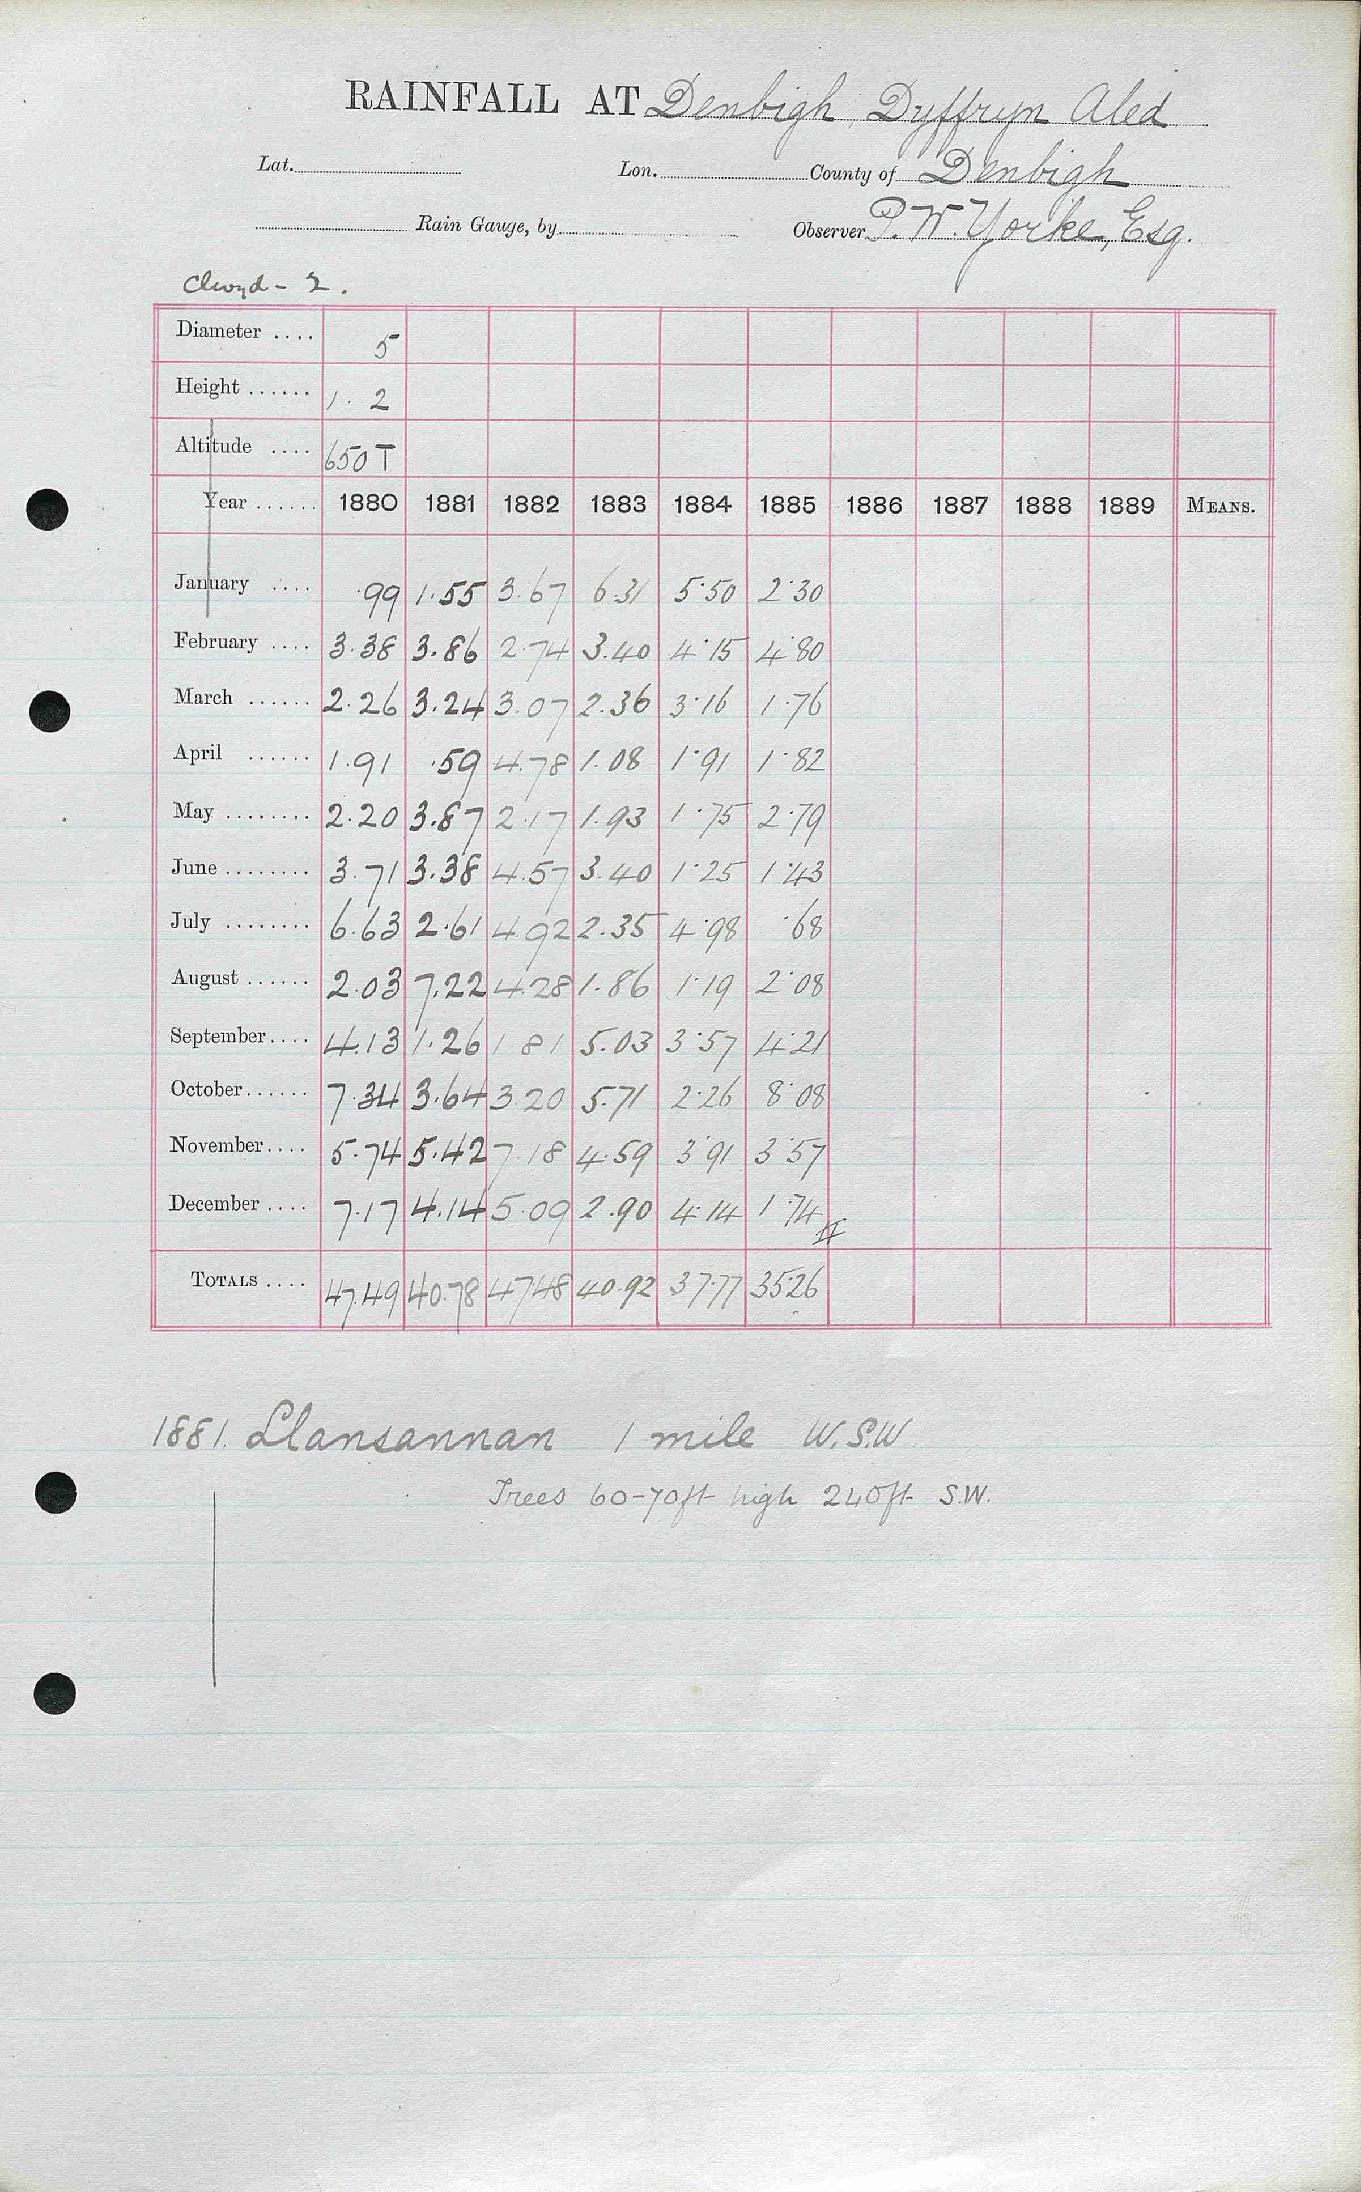 RAINFALL AT Denbigh, Dyffryn Aled
Lat. Lon. County of Denbigh
Rain Gauge, by Observer P. W. Yorke, Esq.
Clwyd - 2.
Diameter .... 5
Height ...... 1. 2
Altitude .... 650 T
Year ...... 1880 1881 1882 1883 1884 1885 1886 1887 1888 1889 MEANS.
January .... .99 1.55 3.67 6.31 5.50 2.30
February .... 3.38 3.86 2.74 3.40 4.15 4.80
March ...... 2.26 3.24 3.07 2.36 3.16 1.76
April ...... 1.91 .59 4.78 1.08 1.91 1.82
May ........ 2.20 3.87 2.17 1.93 1.75 2.79
June ........ 3.71 3.38 4.57 3.40 1.25 1.43
July ........ 6.63 2.61 4.92 2.35 4.98 .68
August ...... 2.03 7.22 4.28 1.86 1.19 2.08
September.... 4.13 1.26 1 81 5.03 3.57 4.21
October...... 7.34 3.64 3.20 5.71 2.26 8.08
November.... 5.74 5.42 7.18 4.59 3.91 3.57
December .... 7.17 4.14 5.09 2.90 4.14 1.74
TOTALS .... 47.49 40.78 47.48 40.92 37.77 35.26
1881. Llansannan 1 mile W.S.W
Trees 60-70ft high 240ft S.W.